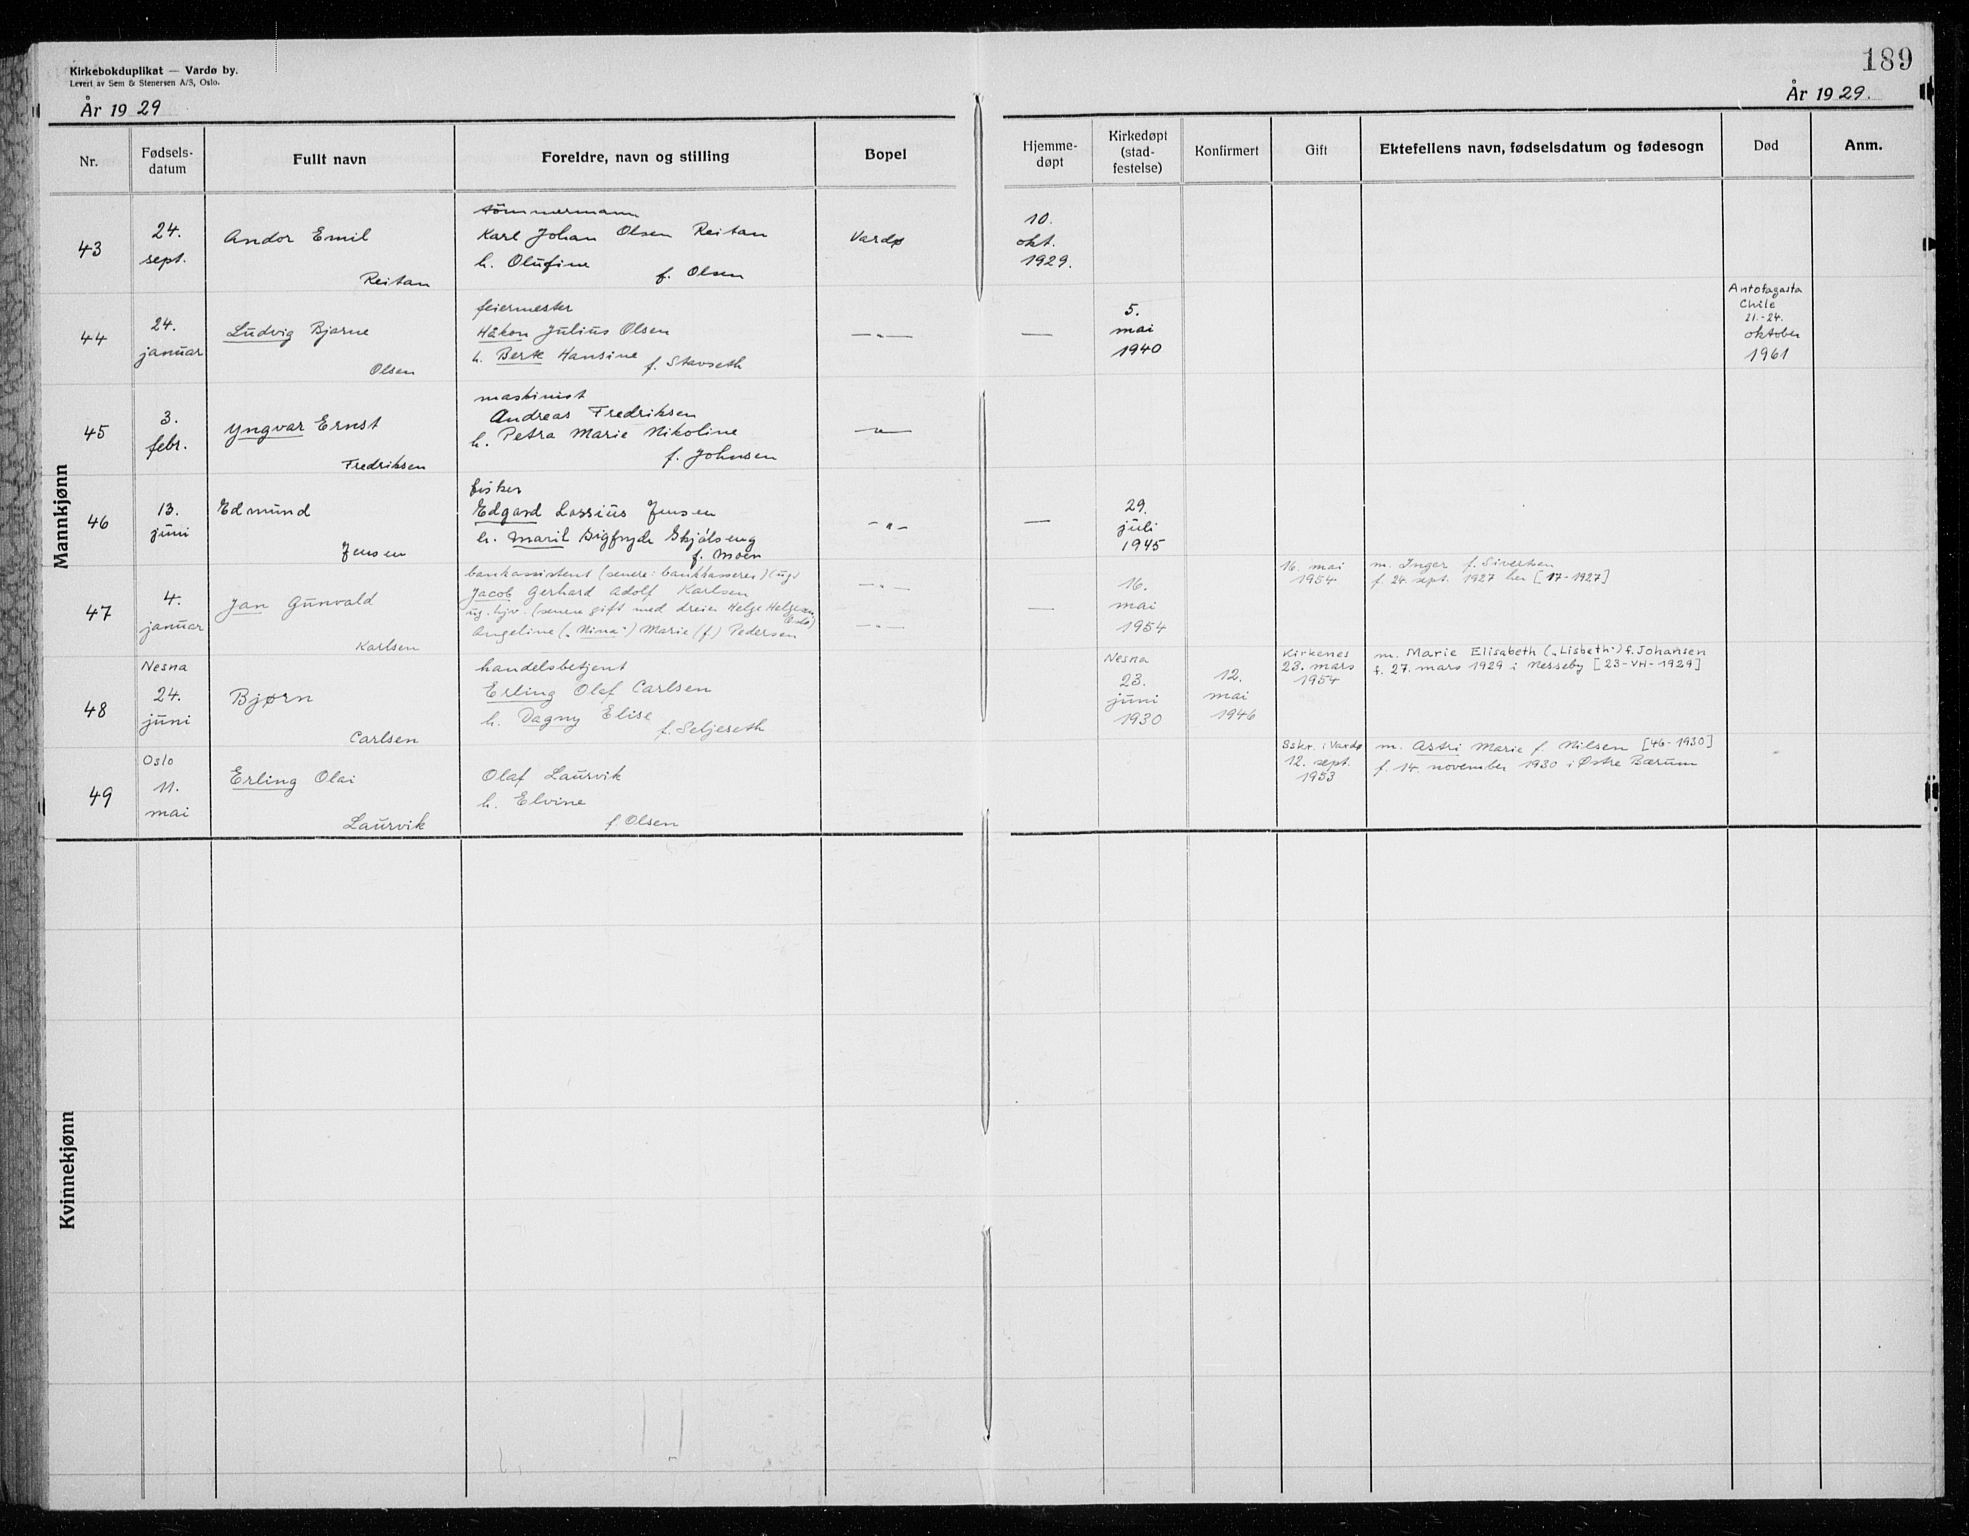 Kirkebokduplikat — Vardø by.
Levert av Sem & Stenersen A/S, Oslo.
År 1929
189
År 1929.
Nr.
Fødsels-
datum
Fullt navn
Foreldre, navn og stilling
Bopel
Hjemme-
døpt
Kirkedøpt
(stad-
festelse)
Konfirmert
Gift
Ektefellens navn, fødselsdatum og fødesogn
Død
Anm.
Mannkjønn
43
24.
sept.
Andor Emil
Reitan
tömmermann
Karl Johan Olsen Reitan
h. Olufine f. Olsen
Vardø
10.
okt.
1929.
44
24.
januar
Ludvig Bjarne
Olsen
feiermester
Håkon Julius Olsen
h. Berte Hansine f. Stavseth
—"—
—
5.
mai
1940
Antofagasta
Chile
21.-24.
oktober
1961
45
3.
febr.
Yngvar Ernst
Fredriksen
maskinist
Andreas Fredriksen
h. Petra Marie Nikoline
f. Johnsen
—"—
46
13.
juni
Edmund
Jensen
fisker
Edgard Lossius Jensen
h. Marit Sigfryde Skjølseng
f. Moen
—"—
—
29.
juli
1945
47
4.
januar
Jan Gunvald
Karlsen
bankassistent (senere: bankkasserer) (ug.)
Jacob Gerhard Adolf Karlsen
ug. hjv. (senere gift med dreier Helge Helgesen,
Oslo)
Angeline („Nina") Marie (f) Pedersen
—"—
—"—
—
16.
mai
1954
16. mai
1954
m. Inger f. Sivertsen
f. 24. sept. 1927 her [17-1927]
48
Nesna
24.
juni
Bjørn
Carlsen
handelsbetjent
Erling Olaf Carlsen
h. Dagny Elise
f. Seljeseth
Nesna
23.
juni
1930
12.
mai
1946
Kirkenes
23. mars
1954
m. Marie Elisabeth („Lisbeth") f. Johansen
f. 27. mars 1929 i Nesseby [23-VH-1929]
49
Oslo
11.
mai
Erling Olai
Laurvik
Olaf Laurvik
h. Elvine
f. Olsen
Sskr. i Vardø
12. sept.
1953
m. Astri Marie f. Nilsen [46-1930]
f. 14. november 1930 i Østre Bærum
Kvinnekjønn